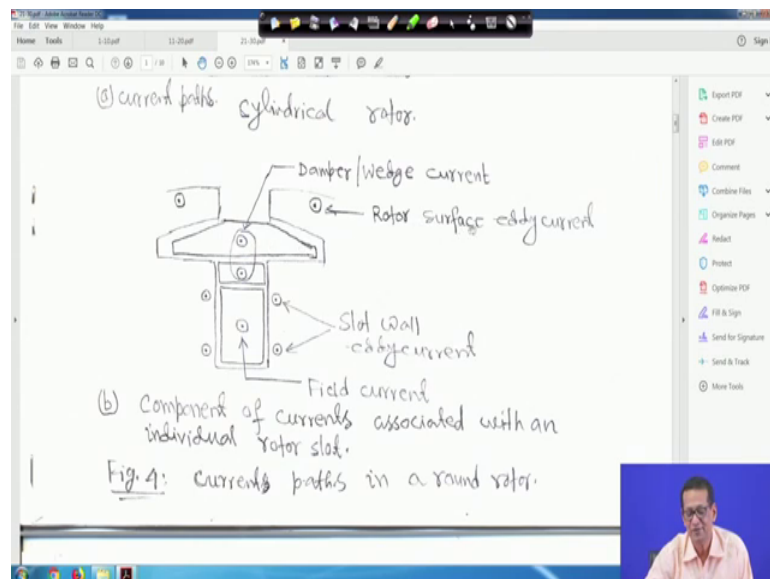 21-30.pdf - Adobe Acrobat Reader DC
File Edit View Window Help
Home Tools 1-10.pdf 11-20.pdf 21-30.pdf × Sign
1 / 10
(a) current paths. cylindrical rotor.
Damper/Wedge current
Rotor surface eddy current
Slot wall
eddy current
Field current
(b) Component of currents associated with an
individual rotor slot.
Fig. 4: Currents paths in a round rotor.
Export PDF
Create PDF
Edit PDF
Comment
Combine Files
Organize Pages
Redact
Protect
Optimize PDF
Fill & Sign
Send for Signature
Send & Track
More Tools